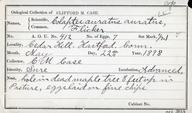 Oological Collection of CLIFFORD M. CASE.
Scientific, Colaptes auratus auratus,
Common, Flicker
A. O. U. No. 412 No. of Eggs, 7 Set Mark,
Locality, Cedar Hill, Hartford, Conn.
Date, May 22nd 1898
Collector, C. M. Case
Identity, Sure Incubation, Advanced
Nest, hole in dead maple tree 8 feet up in
Pasture, eggs laid on fine chips